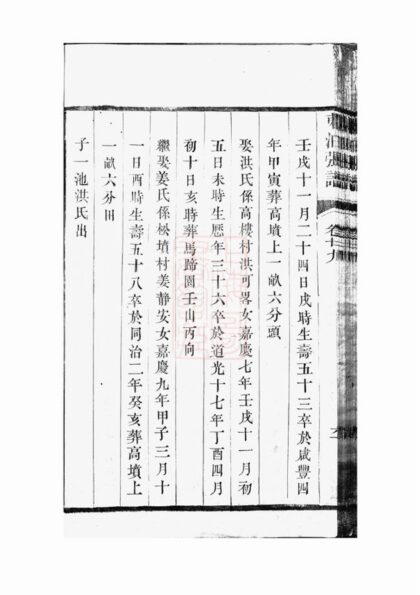 卷十九
壬戌十一月二十四日戌時生壽五十三卒於咸豐四
年甲寅葬高墳上一畝六分頭
娶洪氏係高樓村洪可畧女嘉慶七年壬戌十一月初
五日未時生歷年三十六卒於道光十七年丁酉四月
初十日亥時葬馬蹄園壬山丙向
繼娶姜氏係墳村姜靜安女嘉慶九年甲子三月十
一日酉時生壽五十八卒於同治二年癸亥葬高墳上
一畝六分田
子一池洪氏出